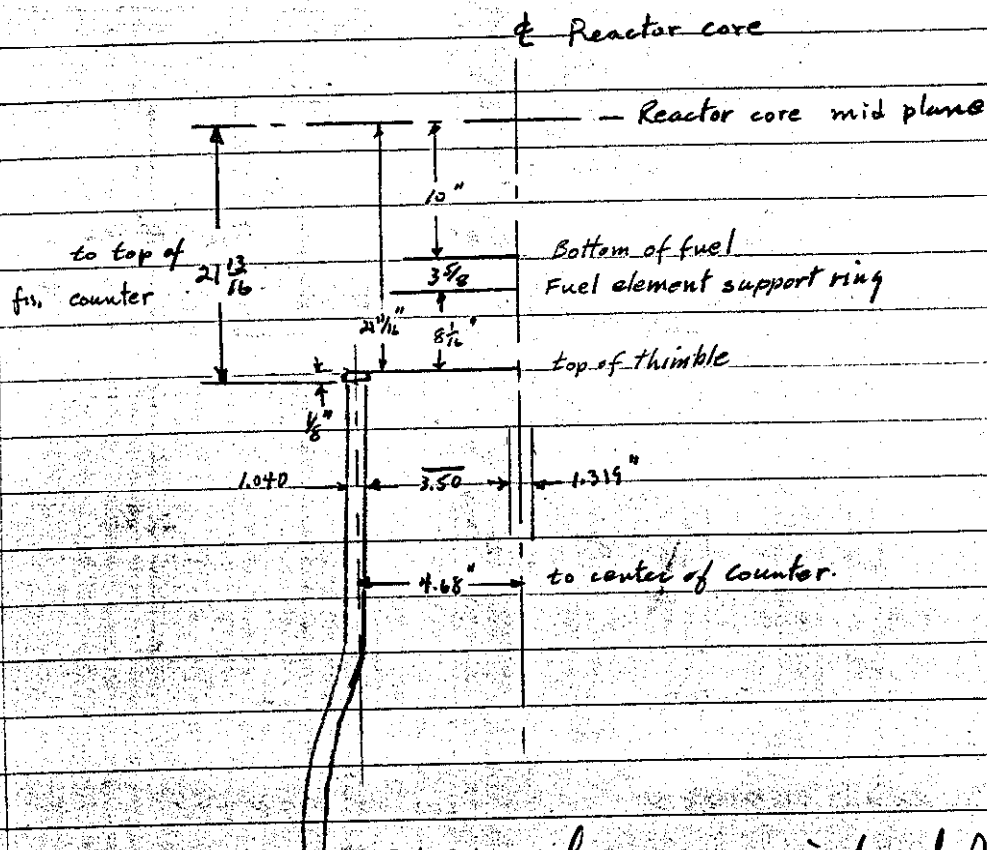 ℄ Reactor core
Reactor core mid plane
10"
to top of
fis. counter
21 13/16
Bottom of fuel
3 5/8
Fuel element support ring
8 1/16"
top of thimble
1/8"
1.040
3.50
1.315"
4.68"
to center of counter.